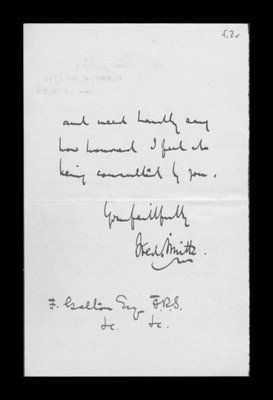 f.2v
and need hardly say
how honoured I feel at
being consulted by you.
Yours faithfully
F. Galton Esq F.R.S.
&c. &c.